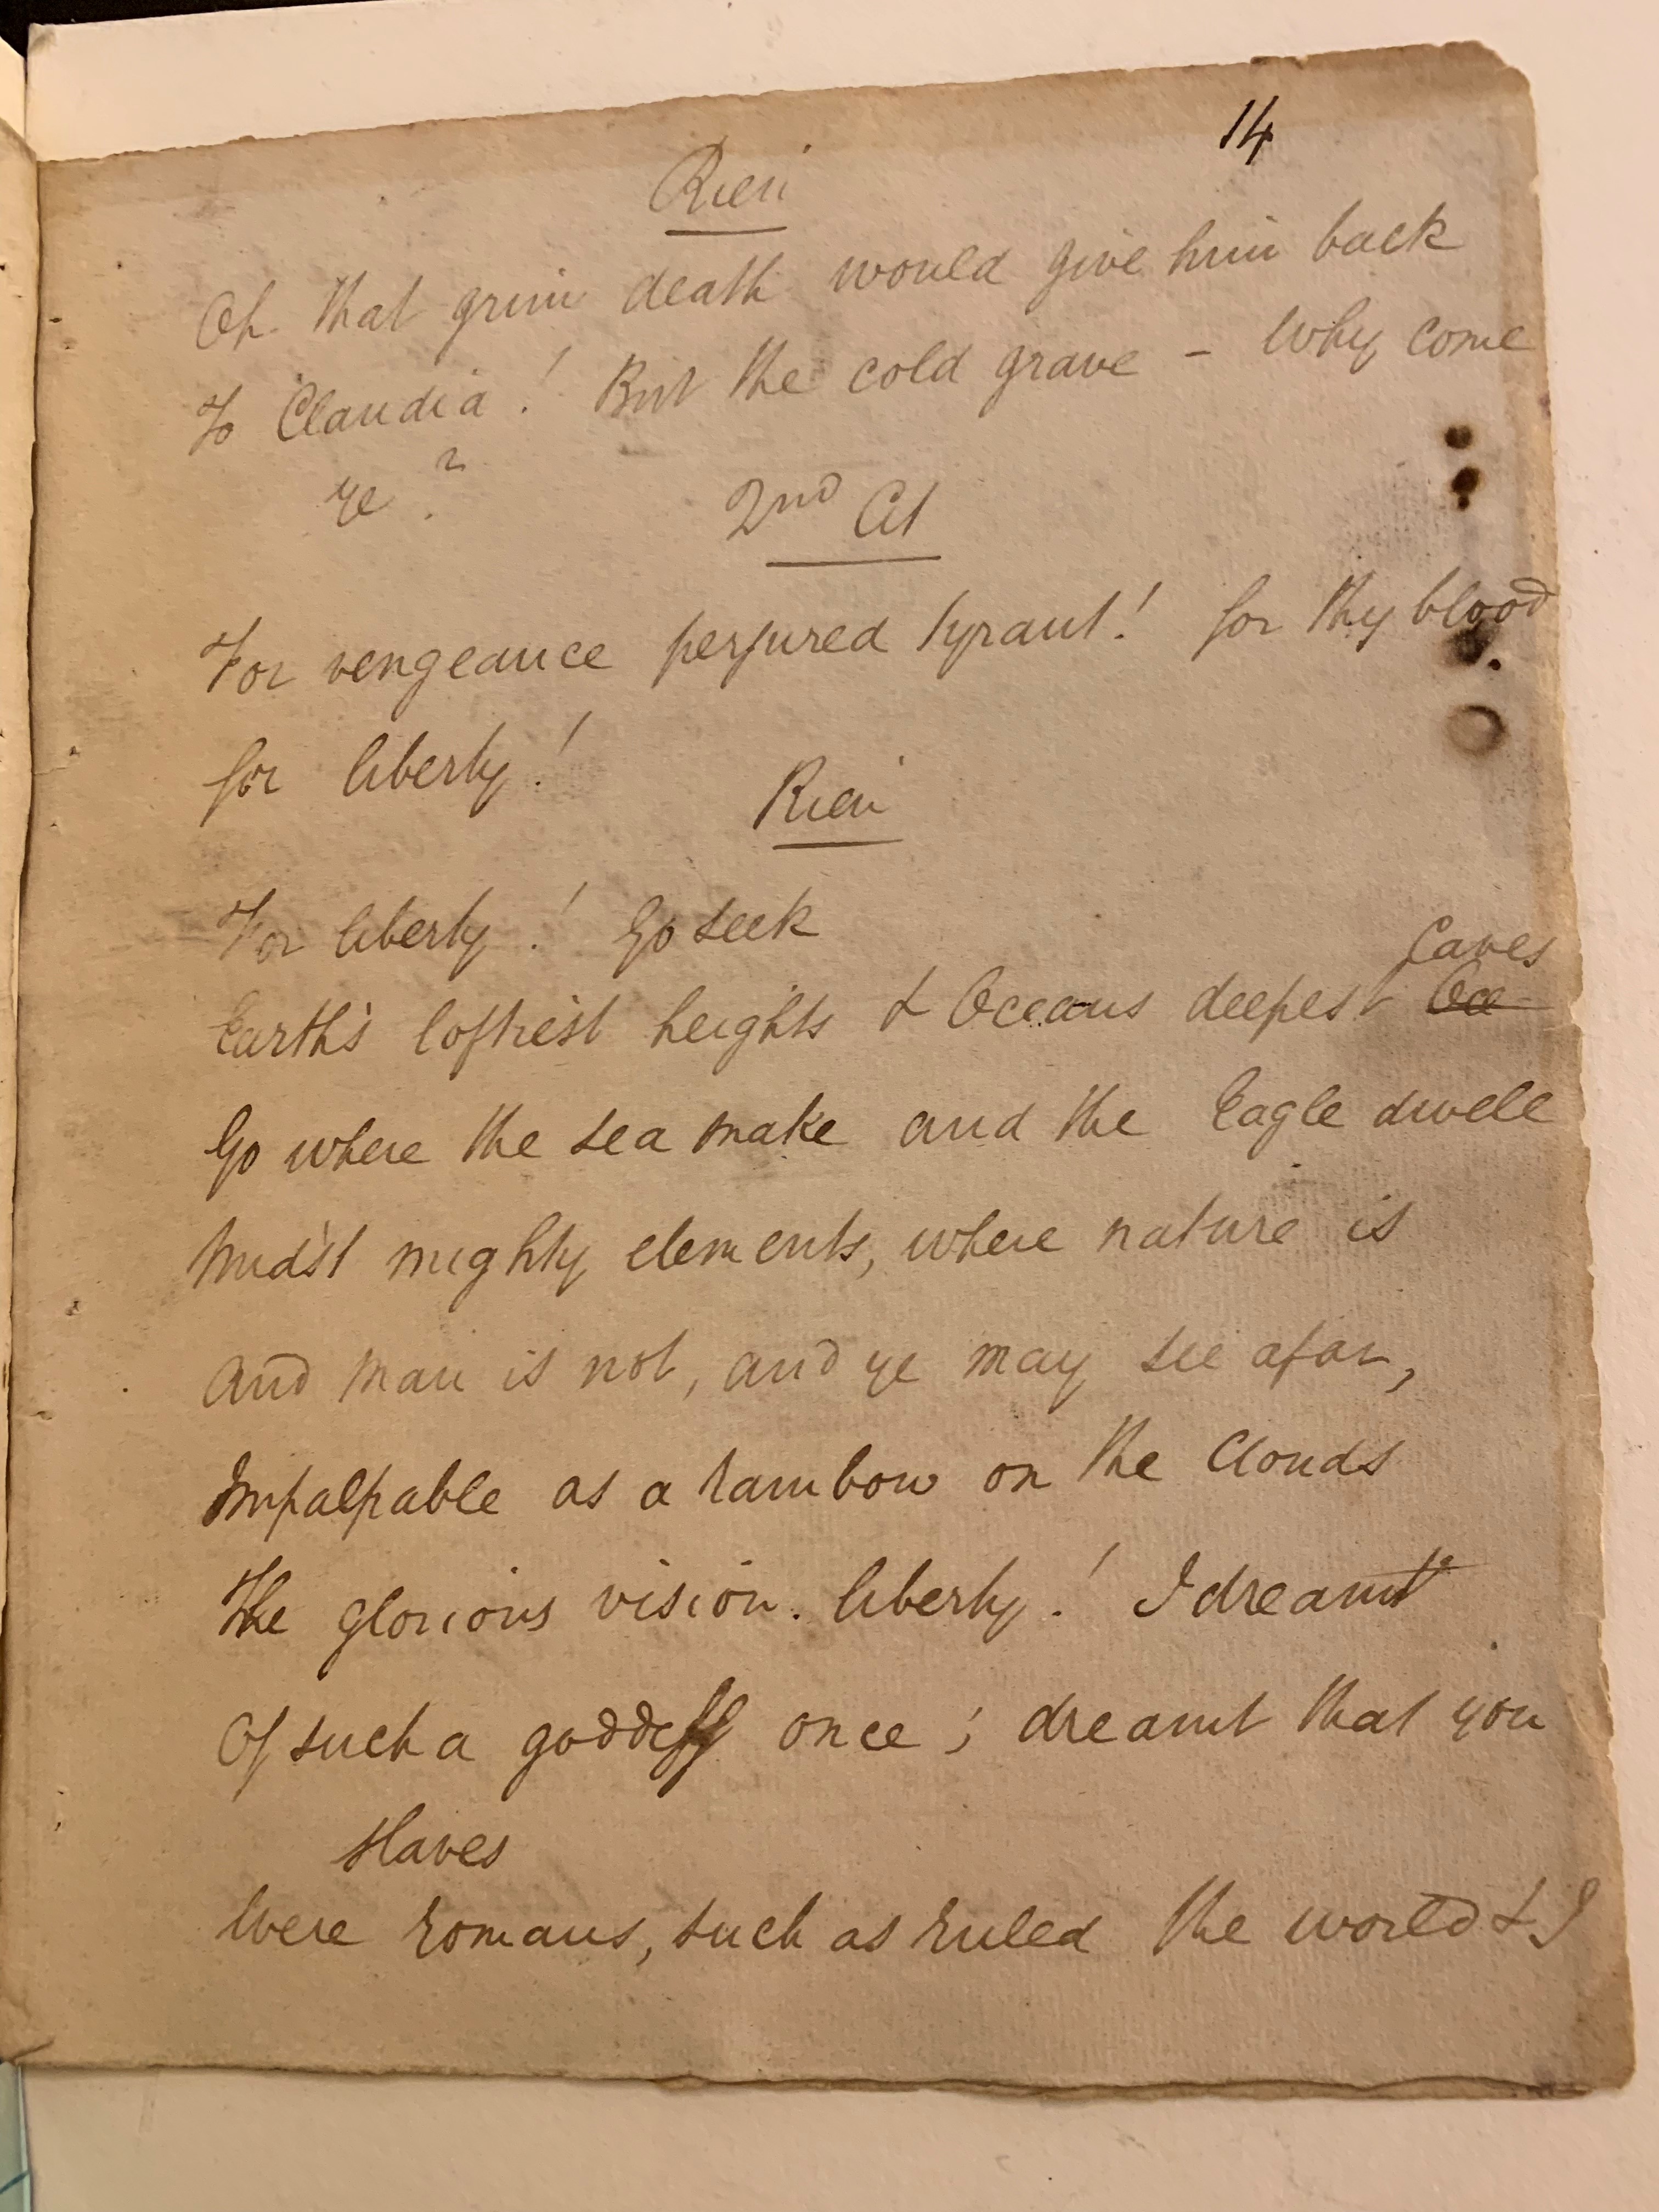 14
Rien
Oh that grim death would give him back
To Claudia! But the cold grave – Why come
ye?
2nd Cit
For vengeance perjured tyrant! for thy blood
for liberty!
Rien
For liberty! Go seek
Caves
Earth's loftiest heights & Oceans deepest Oce
Go where the sea snake and the Eagle dwell
Mids't mighty elements, where nature is
And man is not, and ye may see afar,
Impalpable as a rainbow on the Clouds
The glorious vision. liberty! I dreamt
Of such a goddess once; dreamt that you
slaves
Were romans, such as ruled the world & I